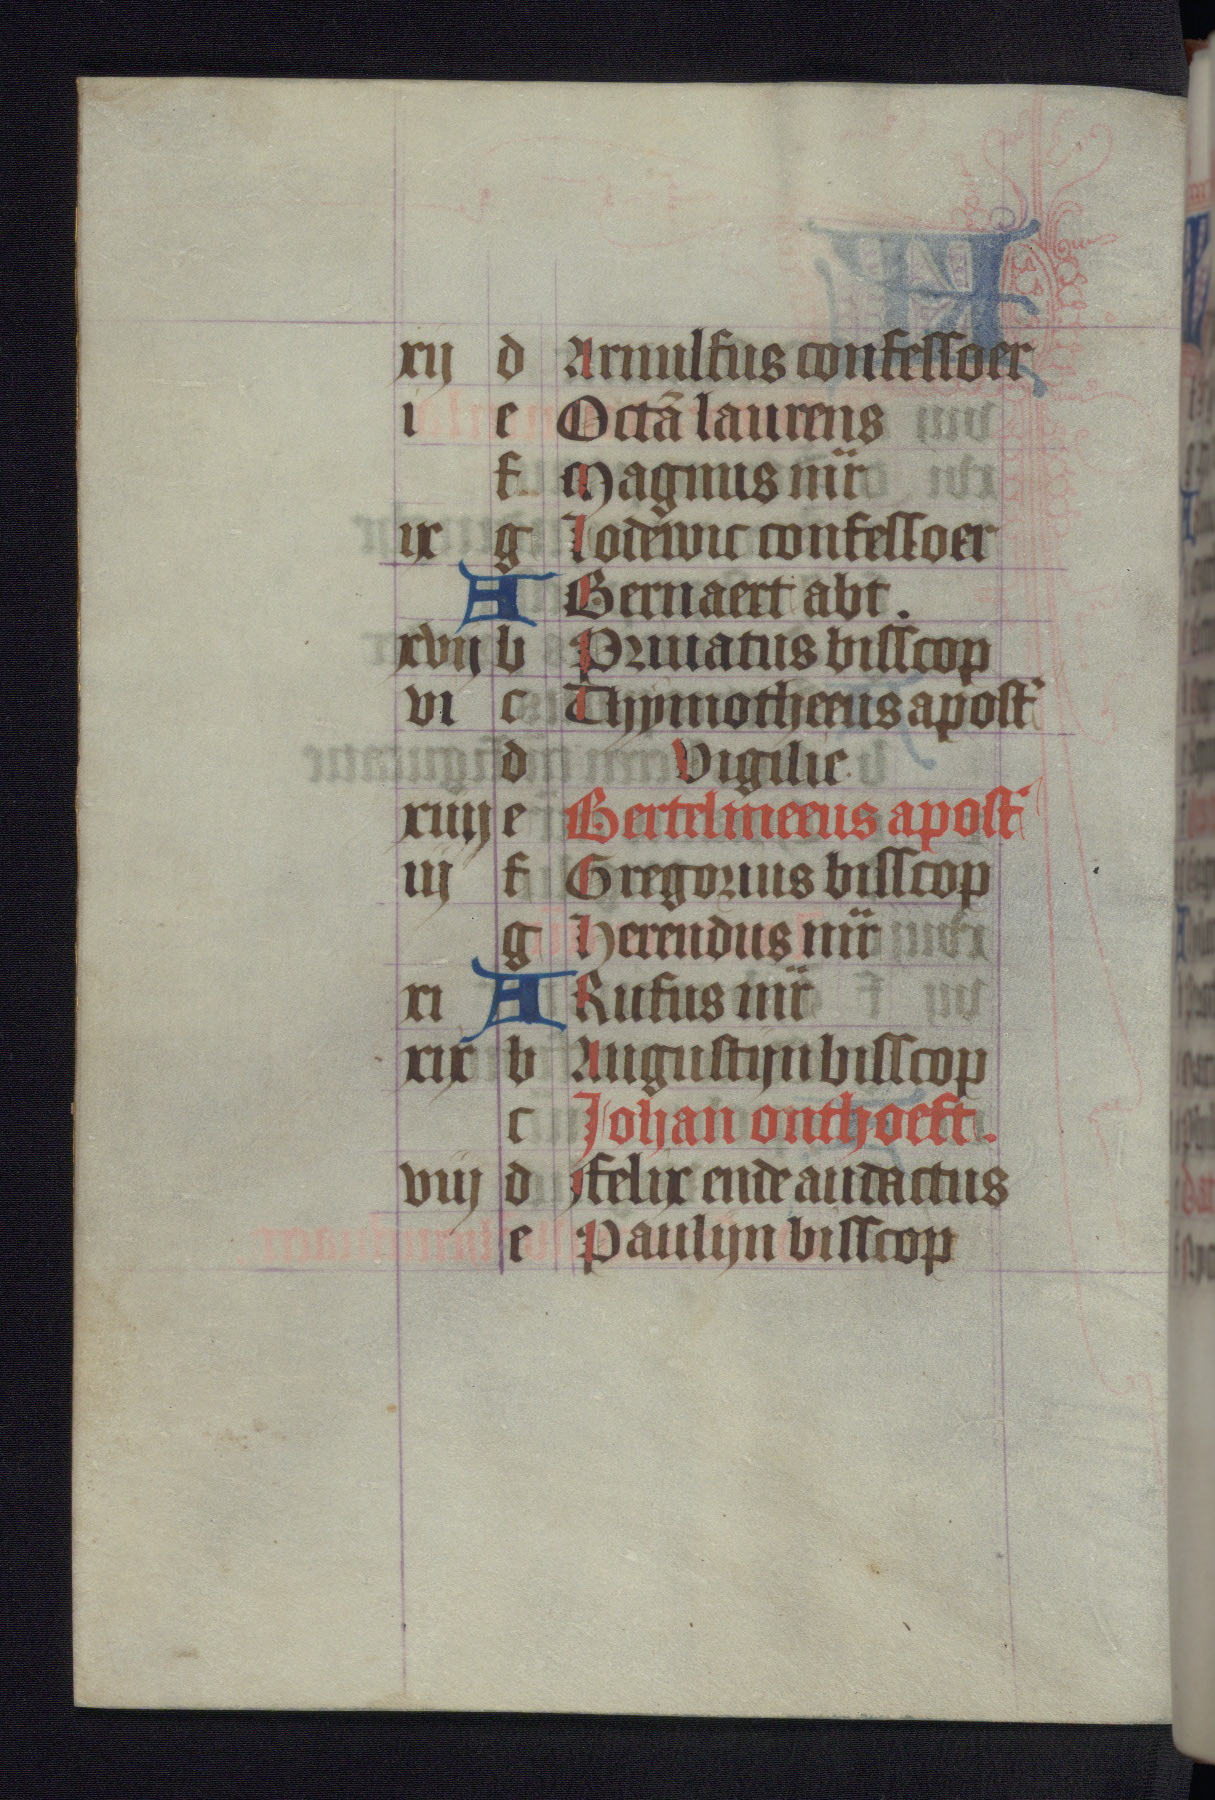 xij d Arnulfus confessoer
i e Octā laurens
f Magnus mr̄
ix g Lodewic confessoer
A Bernaert abt.
xvij b Priuatus bisscop
vi c Thymotheeus apost̄
d Vigilie
xiiij e Bertelmeeus apost̄
iij f Gregorius bisscop
g Herendus mr̄
xi A Rufus mr̄
xix b Augustijn bisscop
c Johan onthoeft.
viij d Felix ende audactus
e Paulijn bisscop